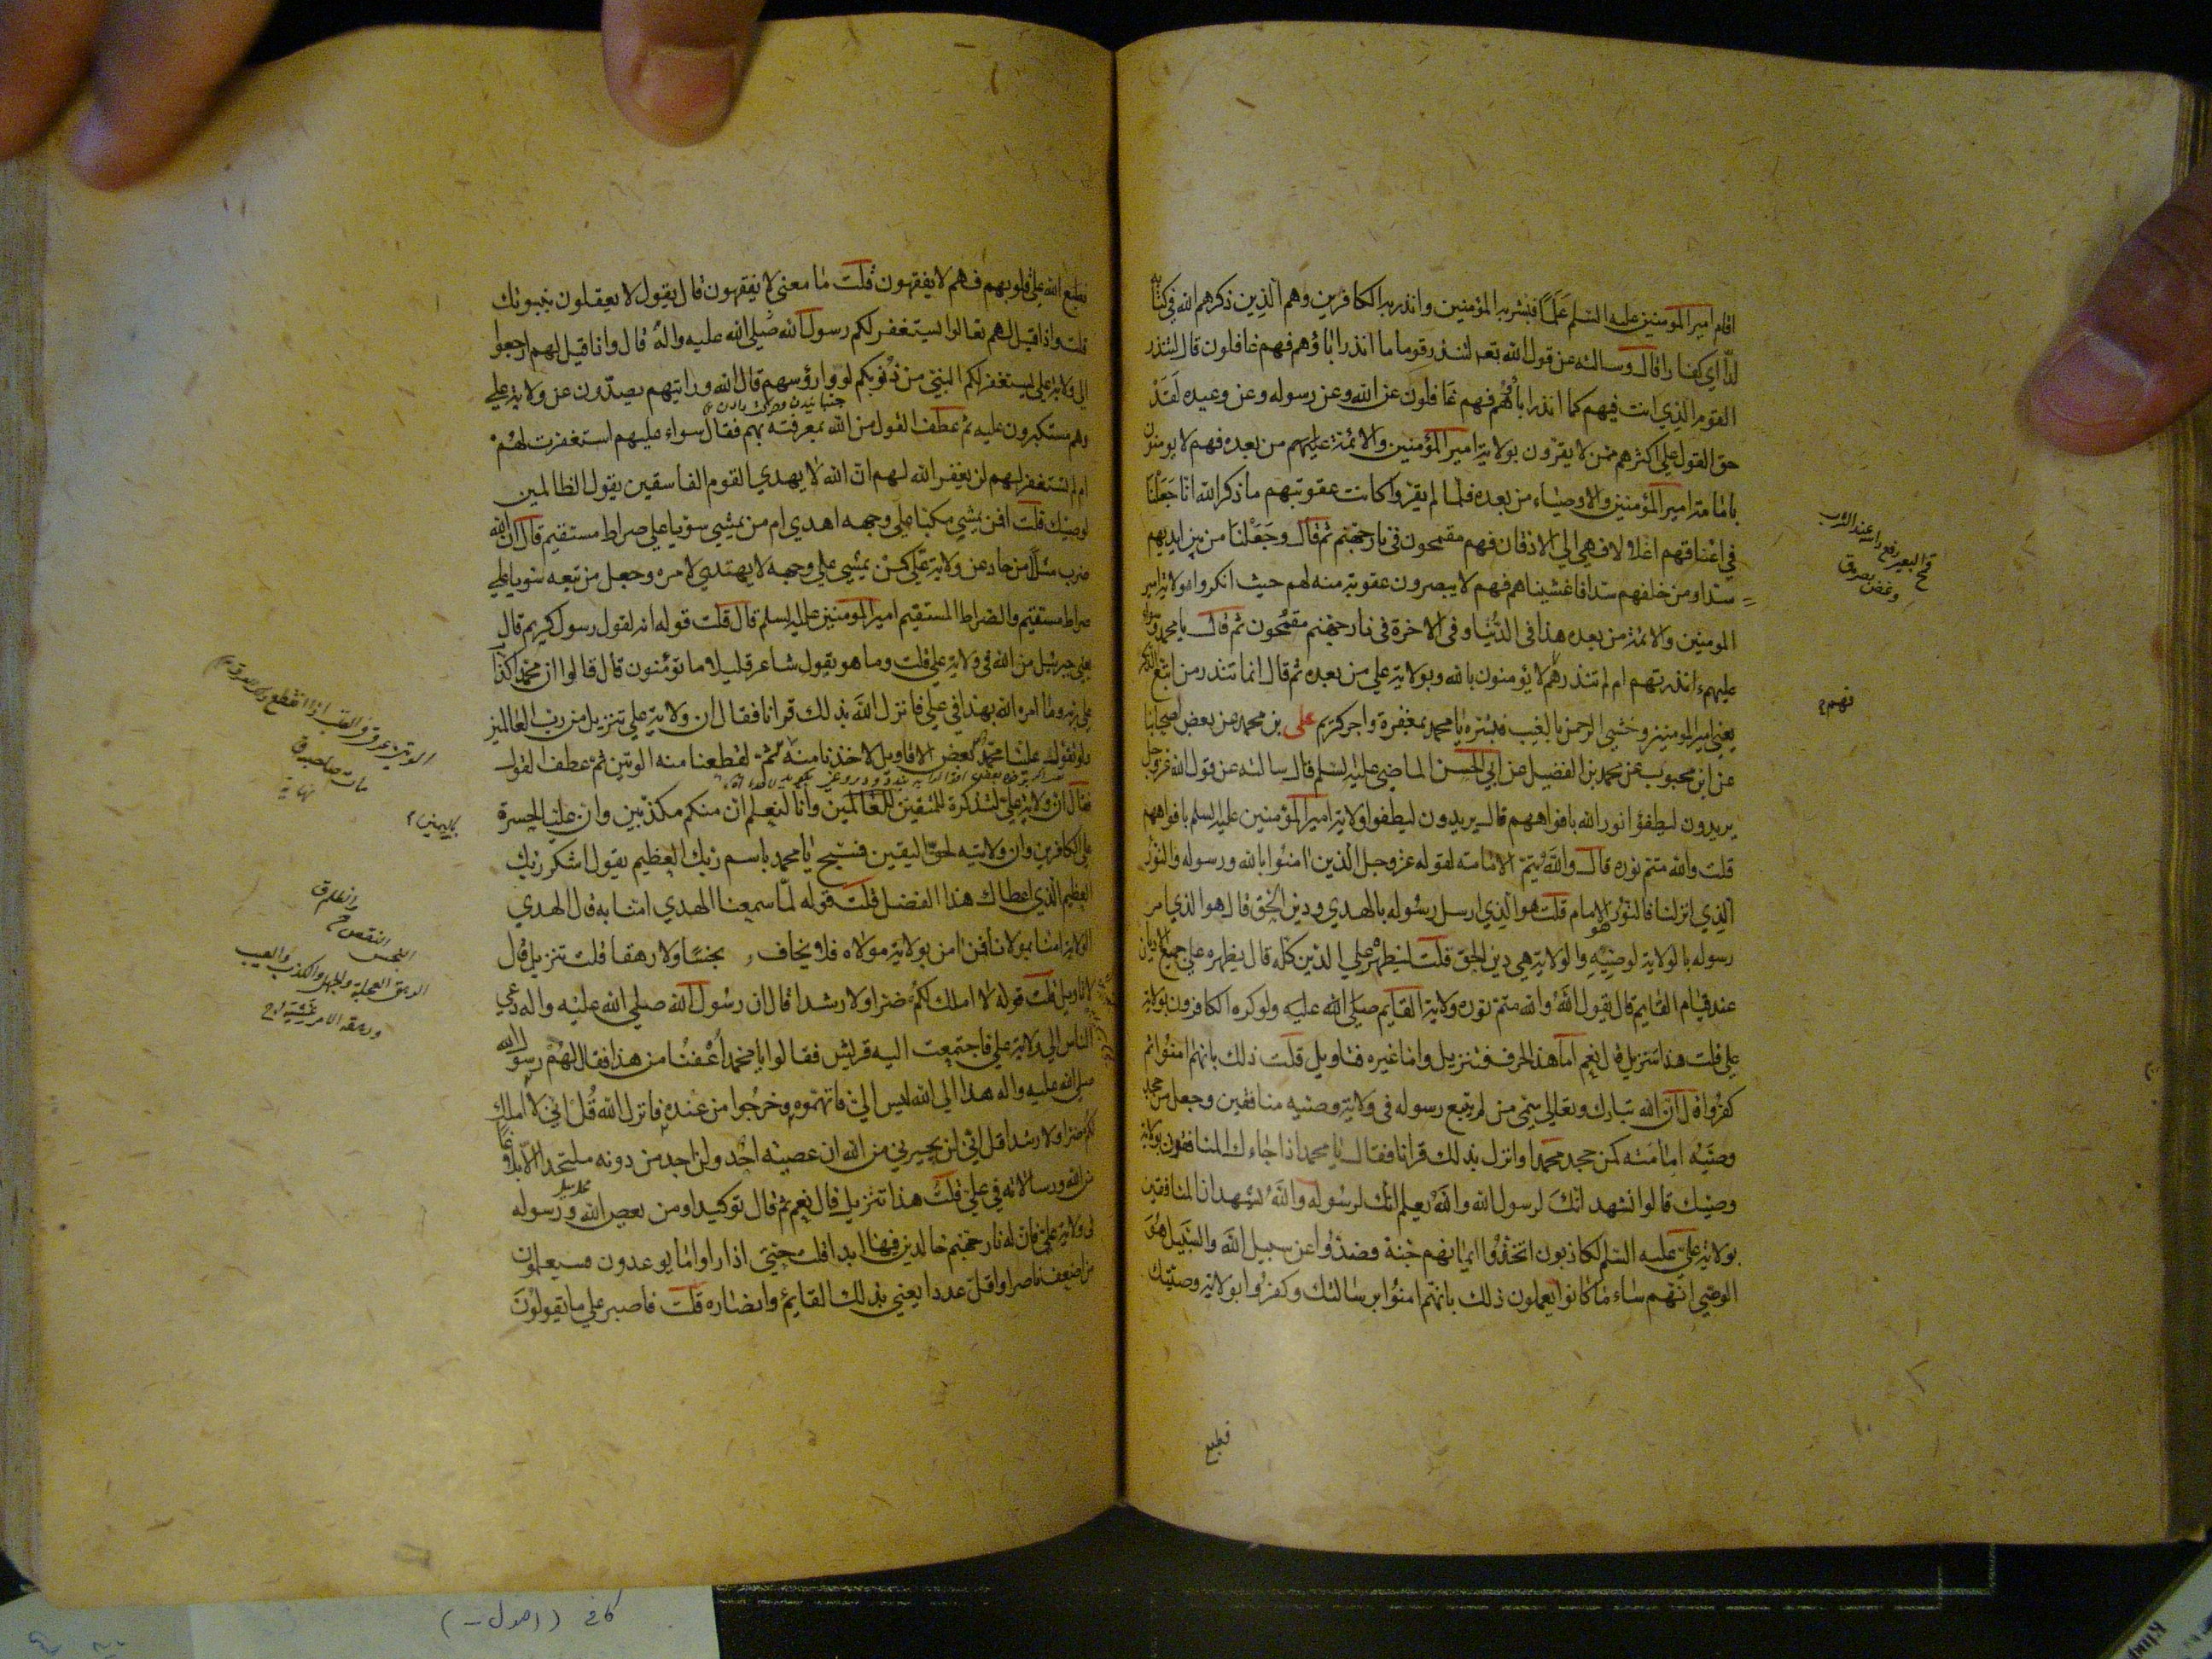 اقام امير المومنين عليه السلم علما فبشر به المؤمنين وانذر به الكافرين وهم الذين ذكرهم الله في كتابه
لدّا اي كفارا قال وسالته عن قول الله تعه لتنذر قوما ما انذر اباؤهم فهم غافلون قال لتنذر
القوم الذي انت فيهم كما انذر اباؤهم فهم غافلون عن الله وعن رسوله وعن وعيده لقد
حق القول على اكثرهم ممن لا يقرّون بولاية امير المؤمنين والائمة من بعده فهم لا يومنون
بامامة امير المؤمنين والاوصياء من بعده فلما لم يقروا كانت عقوبتهم ما ذكر الله انا جعلنا
في اعناقهم اغلالا فهي الي الاذقان فهم مقمحون في نار جهنم ثم قال وجعلنا من بين ايديهم
سدا ومن خلفهم سدا فاغشيناهم فهم لا يبصرون عقوبة منه لهم حيث انكروا ولاية امير
المومنين والائمة من بعده هذا في الدنيا وفي الاخرة في نار جهنم مقمحون ثم قال يا محمد وسواء
عليهم ءانذرتهم ام لم تنذرهم لا يؤمنون بالله وبولاية علي من بعده ثم قال انما تنذر من اتبع الذكر
يعني امير المومنين وخشي الرحمن بالغيب فبشره يا محمد بمغفرة واجر كريم علي بن محمد عن بعض اصحابنا
عن ابن محبوب عن محمد بن الفضيل عن ابي الحسن الماضي عليه السلم قال سالته عن قول الله عز وجل
يريدون ليطفؤا نور الله بافواههم قال يريدون ليطفوا ولاية امير المؤمنين عليه السلم بافواههم
قلت والله متم نوره قال والله متم الامامة لقوله عز وجل الذين امنوا بالله ورسوله والنور
الذي انزلنا فالنور هو الامام قلت هو الذي ارسل رسوله بالهدي ودين الحق قال هو الذي امر
رسوله بالولاية لوصيه والولاية هي دين الحق قلت ليظهره علي الدين كله قال يظهره علي جميع الاديان
عند قيام القايم قال يقول الله والله متم نوره ولاية القايم صلي الله عليه ولو كره الكافرون بولاية
علي قلت هذا تنزيل قال نعم اما هذا الحرف فتنزيل واما غيره فتاويل قلت ذلك بانهم امنوا ثم
كفروا قال ان الله تبارك وتعالي سمي من لم يتبع رسوله في ولاية وصيه منافقين وجعل من جحد
وصيه امامته كمن جحد محمدا وانزل بذلك قرانا فقال يا محمد اذا جاءك المنافقون بولاية
وصيك قالوا نشهد انك لرسول الله والله يعلم انك لرسوله والله يشهد ان المنافقين
بولاية علي عليه السلم لكاذبون اتخذوا ايمانهم جنة فصدوا عن سبيل الله والسبيل هو
الوصي انهم ساء ما كانوا يعملون ذلك بانهم امنوا برسالتك وكفروا بولاية وصيتك
فطبع
قمح البعير رفع راسه عند الشرب
وغض بصره ق
فهم
فطبع الله على قلوبهم فهم لا يفقهون قلت ما معني لا يفقهون قال يقول لا يعقلون بنبوتك
قلت واذا قيل لهم تعالوا يستغفر لكم رسول الله صلي الله عليه واله قال واذا قيل لهم ارجعوا
الي ولاية علي يستغفر لكم النبي من ذنوبكم لووا رؤسهم قال الله ورايتهم يصدّون عن ولاية علي
وهم مستكبرون عليه ثم عطف القول من الله بمعرفته بهم فقال سواء عليهم استغفرت لهم
ام لم تستغفر لهم لن يغفر الله لهم ان الله لا يهدي القوم الفاسقين يقول الظالمين
لوصيك قلت افمن يمشي مكبّا علي وجهه اهدي ام من يمشي سويا علي صراط مستقيم قال ان الله
ضرب مثلا من حاد عن ولاية علي كمن يمشي علي وجهه لا يهتدي لامره وجعل من تبعه سويا علي
صراط مستقيم والصراط المستقيم امير المومنين عليه السلم قال قلت قوله انه لقول رسول كريم قال
يعني جبرئيل من الله في ولاية علي قلت وما هو بقول شاعر قليلا ما تؤمنون قال قالوا ان محمدا كذاب
علي ربه وما امره الله بهذا في علي فانزل الله بذلك قرانا فقال ان ولاية علي تنزيل من رب العالمين
ولو تقول علينا محمد بعض الاقاويل لاخذنا منه ثم لقطعنا منه الوتين ثم عطف القول
فقال ان ولاية علي لتذكرة للمتقين للعالمين وانا لنعلم ان منكم مكذبين وان عليا لحسرة
علي الكافرين وان ولايته لحق اليقين فسبح يا محمد باسم ربك العظيم يقول اشكر ربك
العظيم الذي اعطاك هذا الفضل قلت قوله لمّا سمعنا الهدي امنا به قال الهدي
الولاية امنا بمولانا فمن امن بولاية مولاه فلا يخاف بخسا ولا رهقا قلت تنزيل قال
لا تاويل قلت قوله لا املك لكم ضرا ولا رشدا قال ان رسول الله صلي الله عليه واله دعي
الناس الي ولاية علي فاجتمعت اليه قريش فقالوا يا محمد اعفنا من هذا فقال لهم رسول الله
صلي الله عليه واله هذا الي الله ليس الي فاتهموه وخرجوا من عنده فانزل الله قل اني لا املك
لكم ضرا ولا رشدا قل اني لن يجيرني من الله ان عصيته احد ولن اجد من دونه ملتحدا الا بلاغا
من الله ورسالاته في علي قلت هذا تنزيل قال نعم ثم قال توكيدا ومن يعص الله ورسوله
في ولاية علي فان له نار جهنم خالدين فيها ابدا قلت حتي اذا راوا ما يوعدون فسيعلمون
من اضعف ناصرا واقل عددا يعني بذلك القايم وانصاره قلت فاصبر علي ما يقولون
الوتين عرق في القلب اذا انقطع
مات صاحبه ق
نهاية
باليمين
والظلم ق
البخس النقص
الرهق محركة والجهل والكذب والعيب
كافي (اصول -)